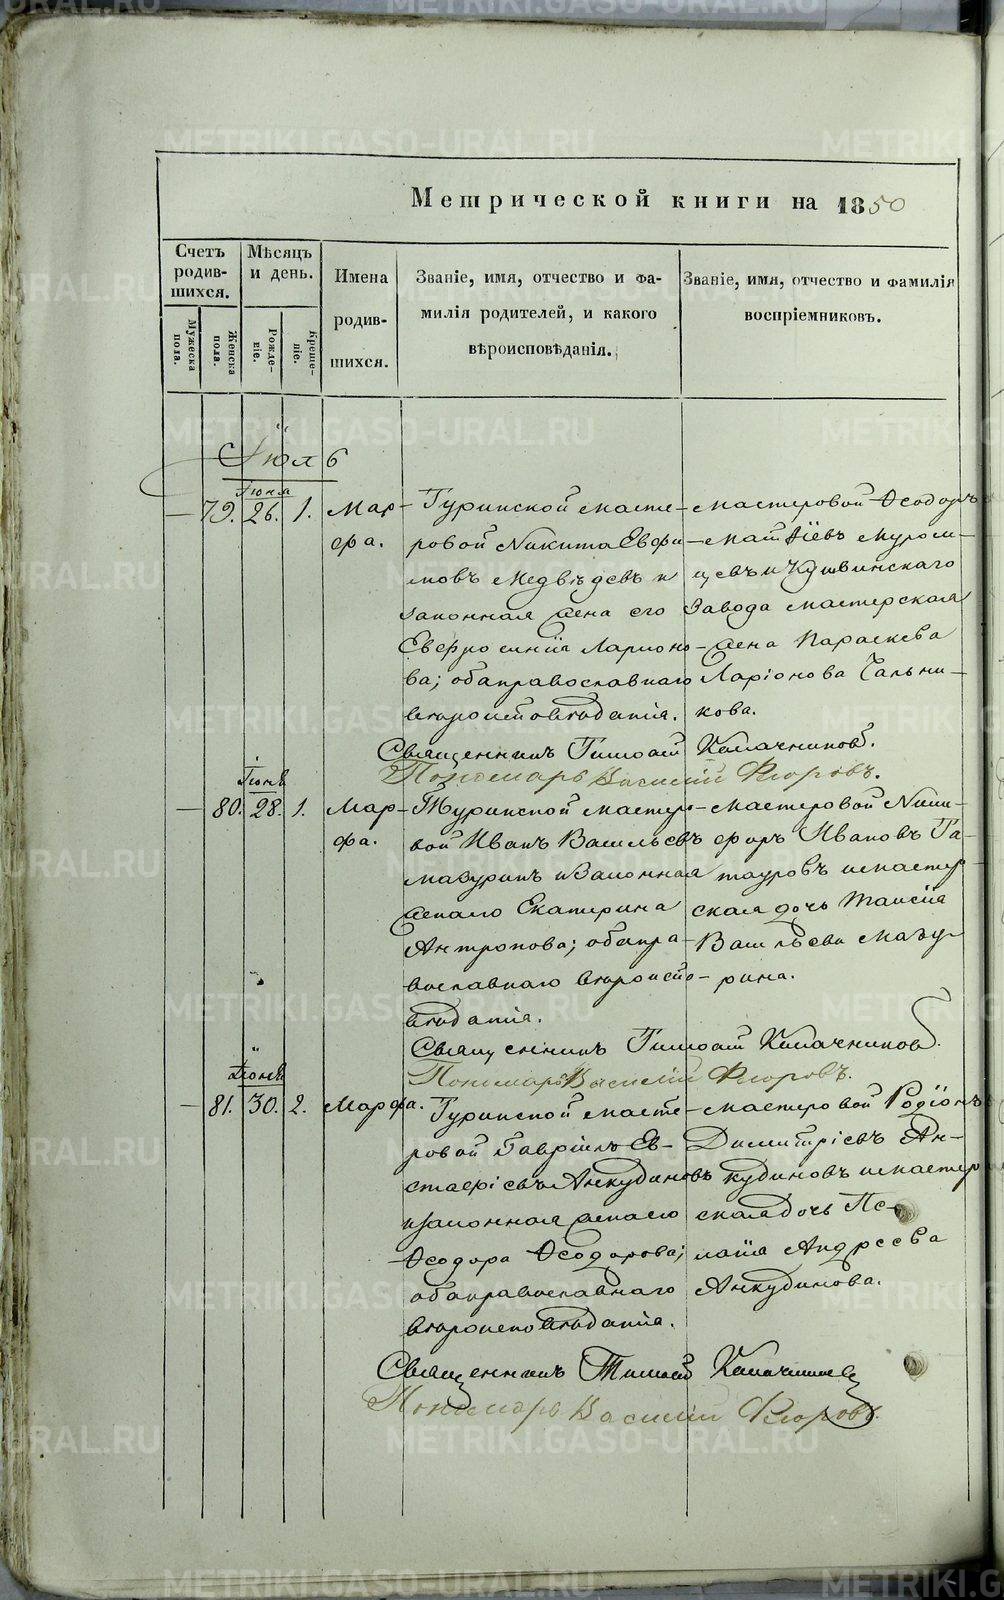 METRIKI.GASO-URAL.RU
Метрической книги на 1850
Счетъ родив-шихся.
Мужеска пола.
Женска пола.
Мѣсяцъ и день.
Рожде-ніе.
Креще-ніе.
Имена родив-шихся.
Званіе, имя, отчество и фа-
милія родителей, и какого
вѣроисповѣданія.
Званіе, имя, отчество и фамилія
воспріемниковъ.
Іюль
Іюня
79. 26. 1.
Мар-
фа.
Туринской масте-
ровой Никита Евфи-
мовъ Медвѣдевъ и
законная жена его
Евфросинія Ларионо-
ва; оба православнаго
вѣроисповѣданія.
мастеровой Ѳеодоръ
Матѳіевъ Муром-
цевъ и Кушвинскаго
Завода мастерская
жена Параскева
Ларіонова
кова.
Священникъ Тимоѳей Калачниковъ.
Пономарь Василій Флоровъ.
Іюня
80. 28. 1.
Мар-
фа.
Туринской мастеро-
вой Иванъ Васильевъ
Мазуринъ и Законная
жена его Екатерина
Антропова; оба пра-
вославнаго вѣроиспо-
вѣданія.
мастеровой Ники-
форъ Ивановъ Га-
тауровъ и мастер-
ская дочь Таисія
Васильева Мазу-
рина.
Священникъ Тимоѳей Калачниковъ.
Пономарь Василій Флоровъ.
Іюня
81. 30. 2.
Марфа.
Туринской масте-
ровой Гавріилъ Ев-
стафіевъ Анкудиновъ
и законная жена его
Ѳеодора Ѳеодорова;
оба православнаго
вѣроисповѣданія.
мастеровой Родіонъ
Димитріевъ Ан-
кудиновъ и мастер
ская дочь Пе-
лагія Андреева
Анкудинова.
Священникъ Тимоѳей Калачниковъ
Пономарь Василій Флоровъ.